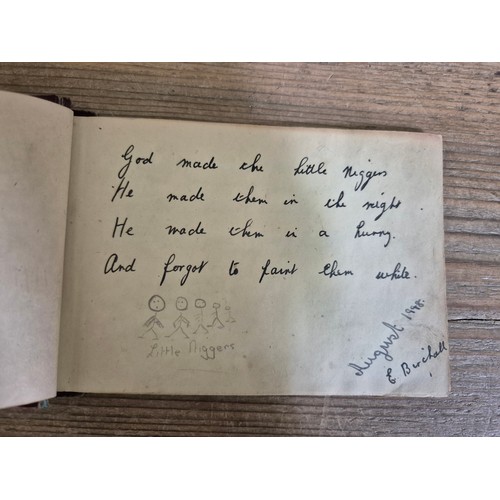 God made the little niggers
He made them in the night.
He made them in a hurry.
And forgot to paint them white.
Little Niggers
August 1948.
E. Birchall